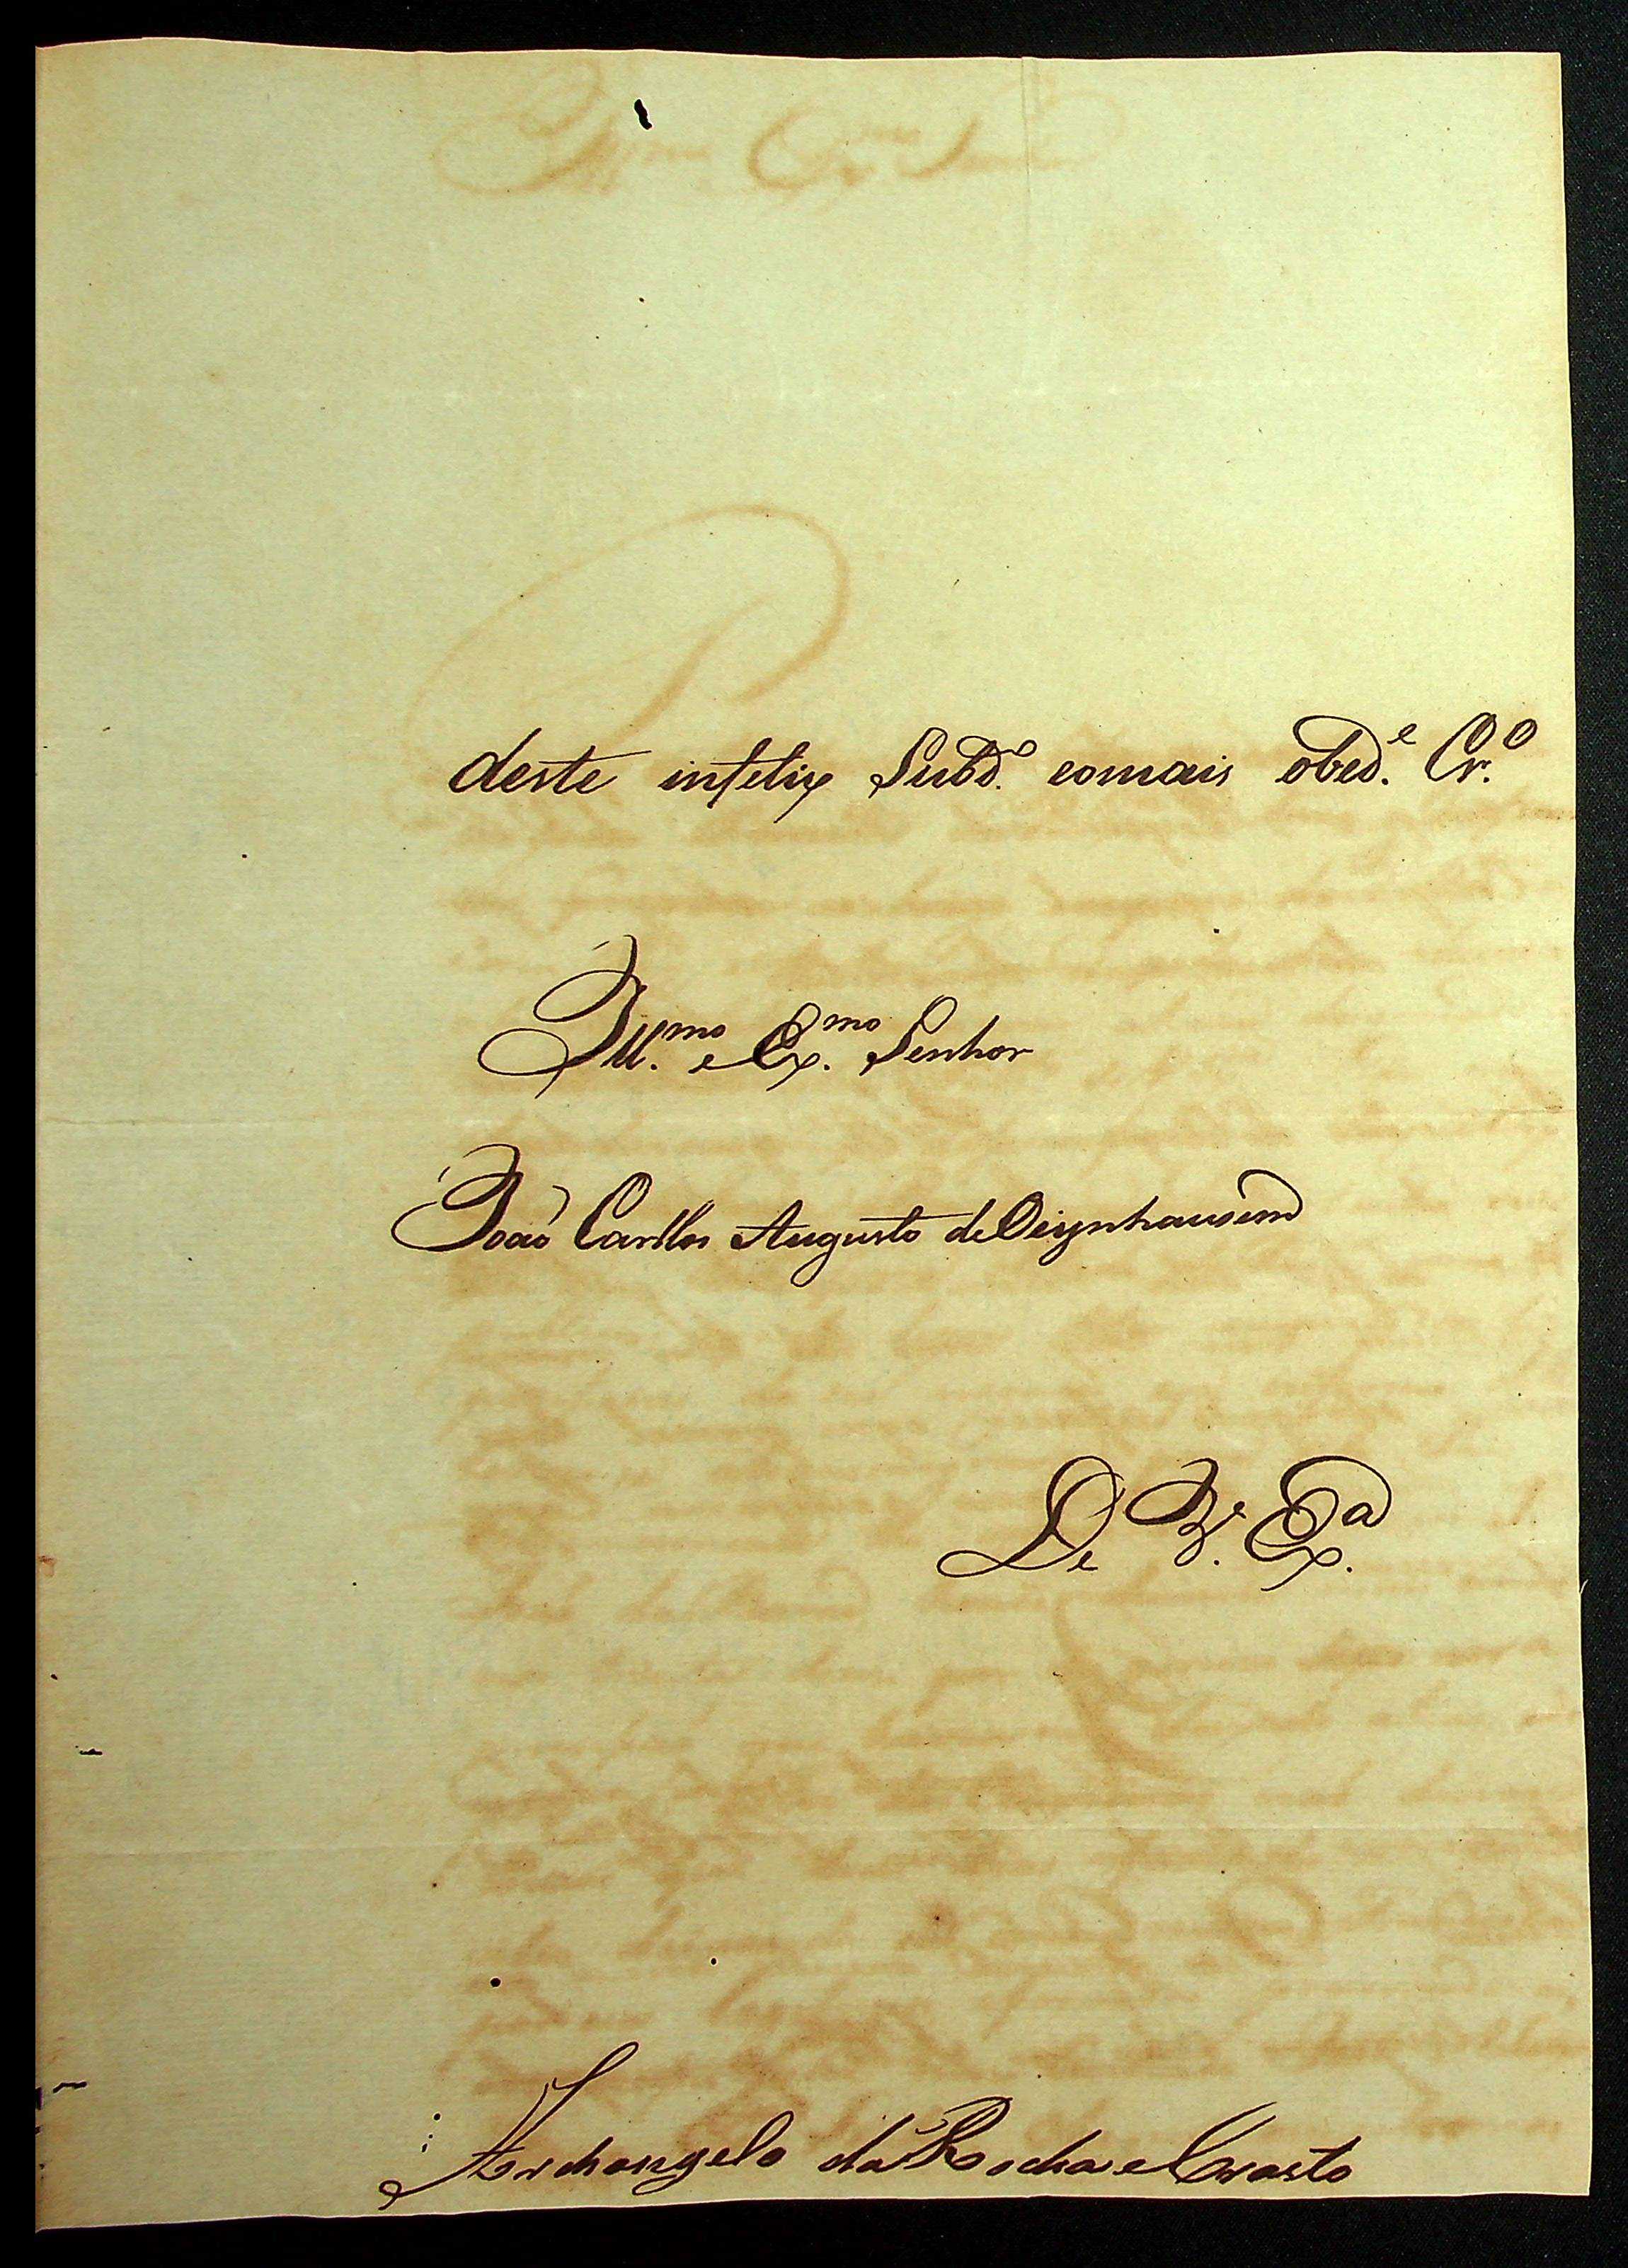 deste infelix Subd.º eomais obed.e Cr.º
Ill.mo e Ex.mo Senhor
João Carllos Augusto de Oeynhausem
De V. Ex.a
Archangelo da Rocha e Crasto